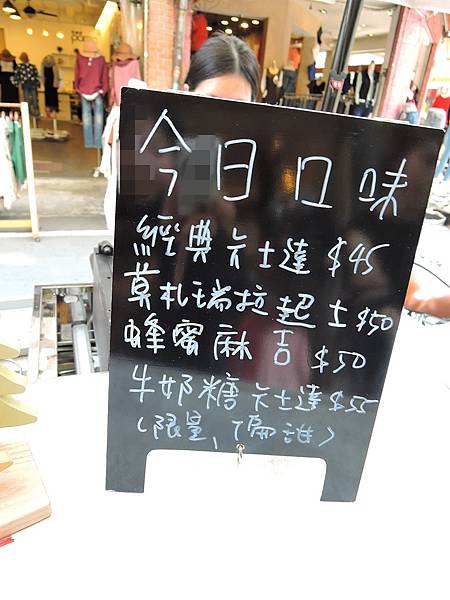 今日口味
經典卡士達 $45
莫札瑞拉起士 $50
蜂蜜麻吉 $50
牛奶糖卡士達 $55
(限量、偏甜)